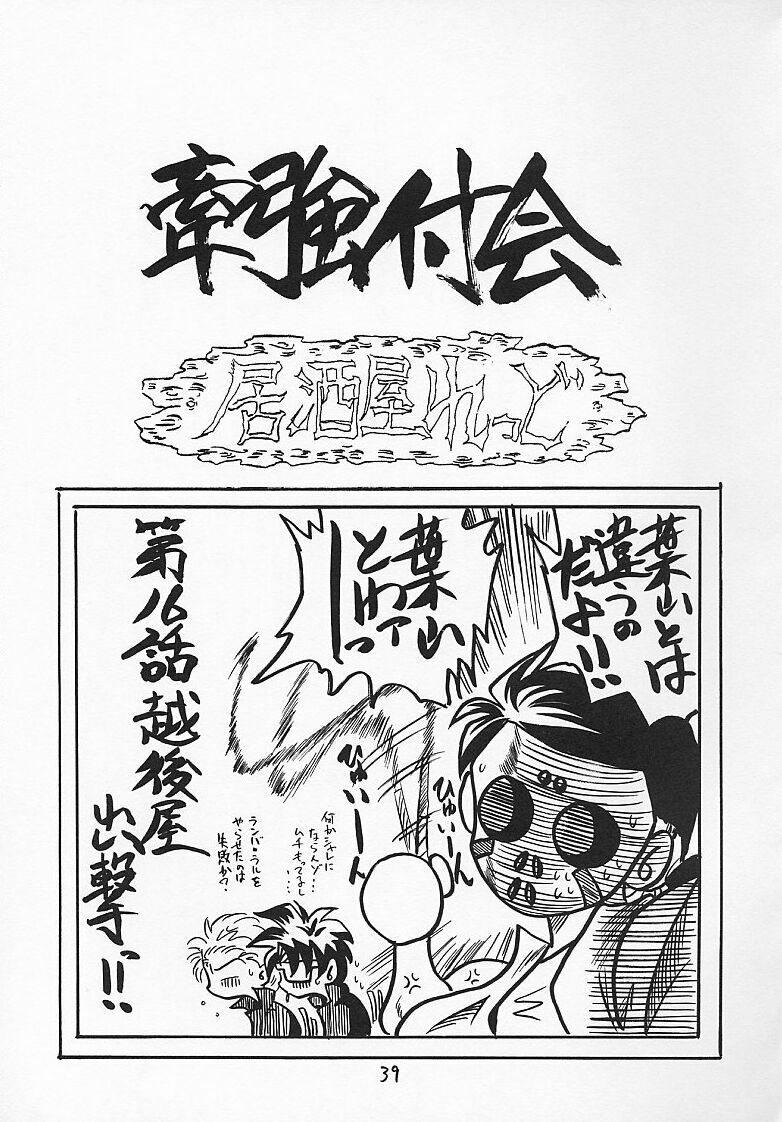 牽強付会
居酒屋れっど
葉山とは
違うの
だよ!!
葉山
とわァ
ーっ
ひゅいーん
ひゅいーん
何かシャレに
ならんゾ…
ムチもってるし
・・・・
ランバ・ラルを
やらせたのは
失敗か?
第16話 越後屋
出撃っ!!
39